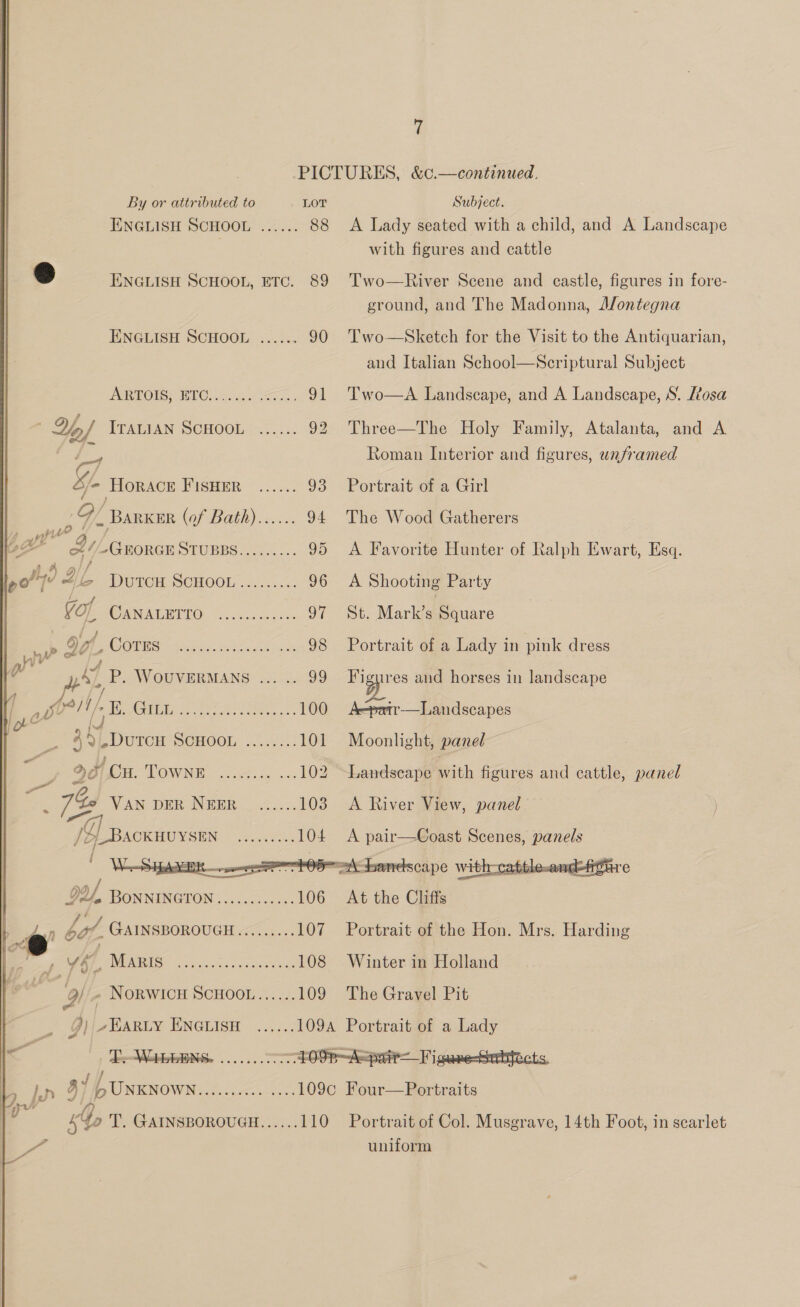 7
PICTURES, &c.—continued.
By or attributed to LOT Subject.
ENGLISH SCHOOL ...... 88 A Lady seated with a child, and A Landscape
with figures and cattle
ENGLISH SCHOOL, ETC. 89 Two—River Scene and castle, figures in fore-
ground, and The Madonna, Montegna
ENGLISH SCHOOL ...... 90 Two—Sketch for the Visit to the Antiquarian,
and Italian School—Scriptural Subject
ARTOIS, ETC. 91 Two—A Landscape, and A Landscape, S. Rosa
ITALIAN SCHOOL ...... 92 Three—The Holy Family, Atalanta, and A
Roman Interior and figures, unframed
HORACE FISHER ...... 93 Portrait of a Girl
BARKER (of Bath)...... 94 The Wood Gatherers
GEORGE STUBBS......... 95 A Favorite Hunter of Ralph Ewart, Esq.
DUTCH SCHOOL......... 96 A Shooting Party
CANALETTO ............ 97 St. Mark's Square
COTES ............... 98 Portrait of a Lady in pink dress
P. WOUVERMANS ... .. 99 Figures and horses in landscape
E. GILL ..................100 A pair—Landscapes
DUTCH SCHOOL ........101 Moonlight, panel
CH. TOWNE ........ ...102 Landscape with figures and cattle, panel
VAN DER NEER ......103 A River View, panel
BACKHUYSEN .........104 A pair—Coast Scenes, panels
W. SHAYER 105 A Landscape with cattle and figure
BONNINGTON............106 At the Cliffs
GAINSBOROUGH.........107 Portrait of the Hon. Mrs. Harding
MARIS ..................108 Winter in Holland
NORWICH SCHOOL......109 The Gravel Pit
EARLY ENGLISH ......109A Portrait of a Lady
T. WALLENS. 109B A pair—Figure Subjects
UNKNOWN.......... ....109C Four—Portraits
T. GAINSBOROUGH......110 Portrait of Col. Musgrave, 14th Foot, in scarlet
uniform